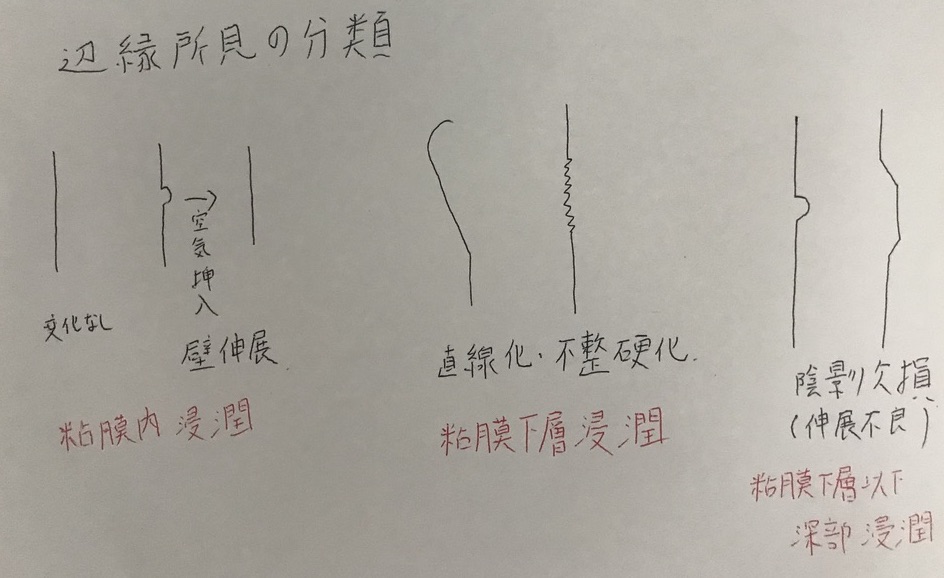 辺縁所見の分類
変化なし
→
空気挿入
壁伸展
粘膜内浸潤
直線化・不整硬化
粘膜下層浸潤
陰影欠損
(伸展不良)
粘膜下層以下
深部浸潤